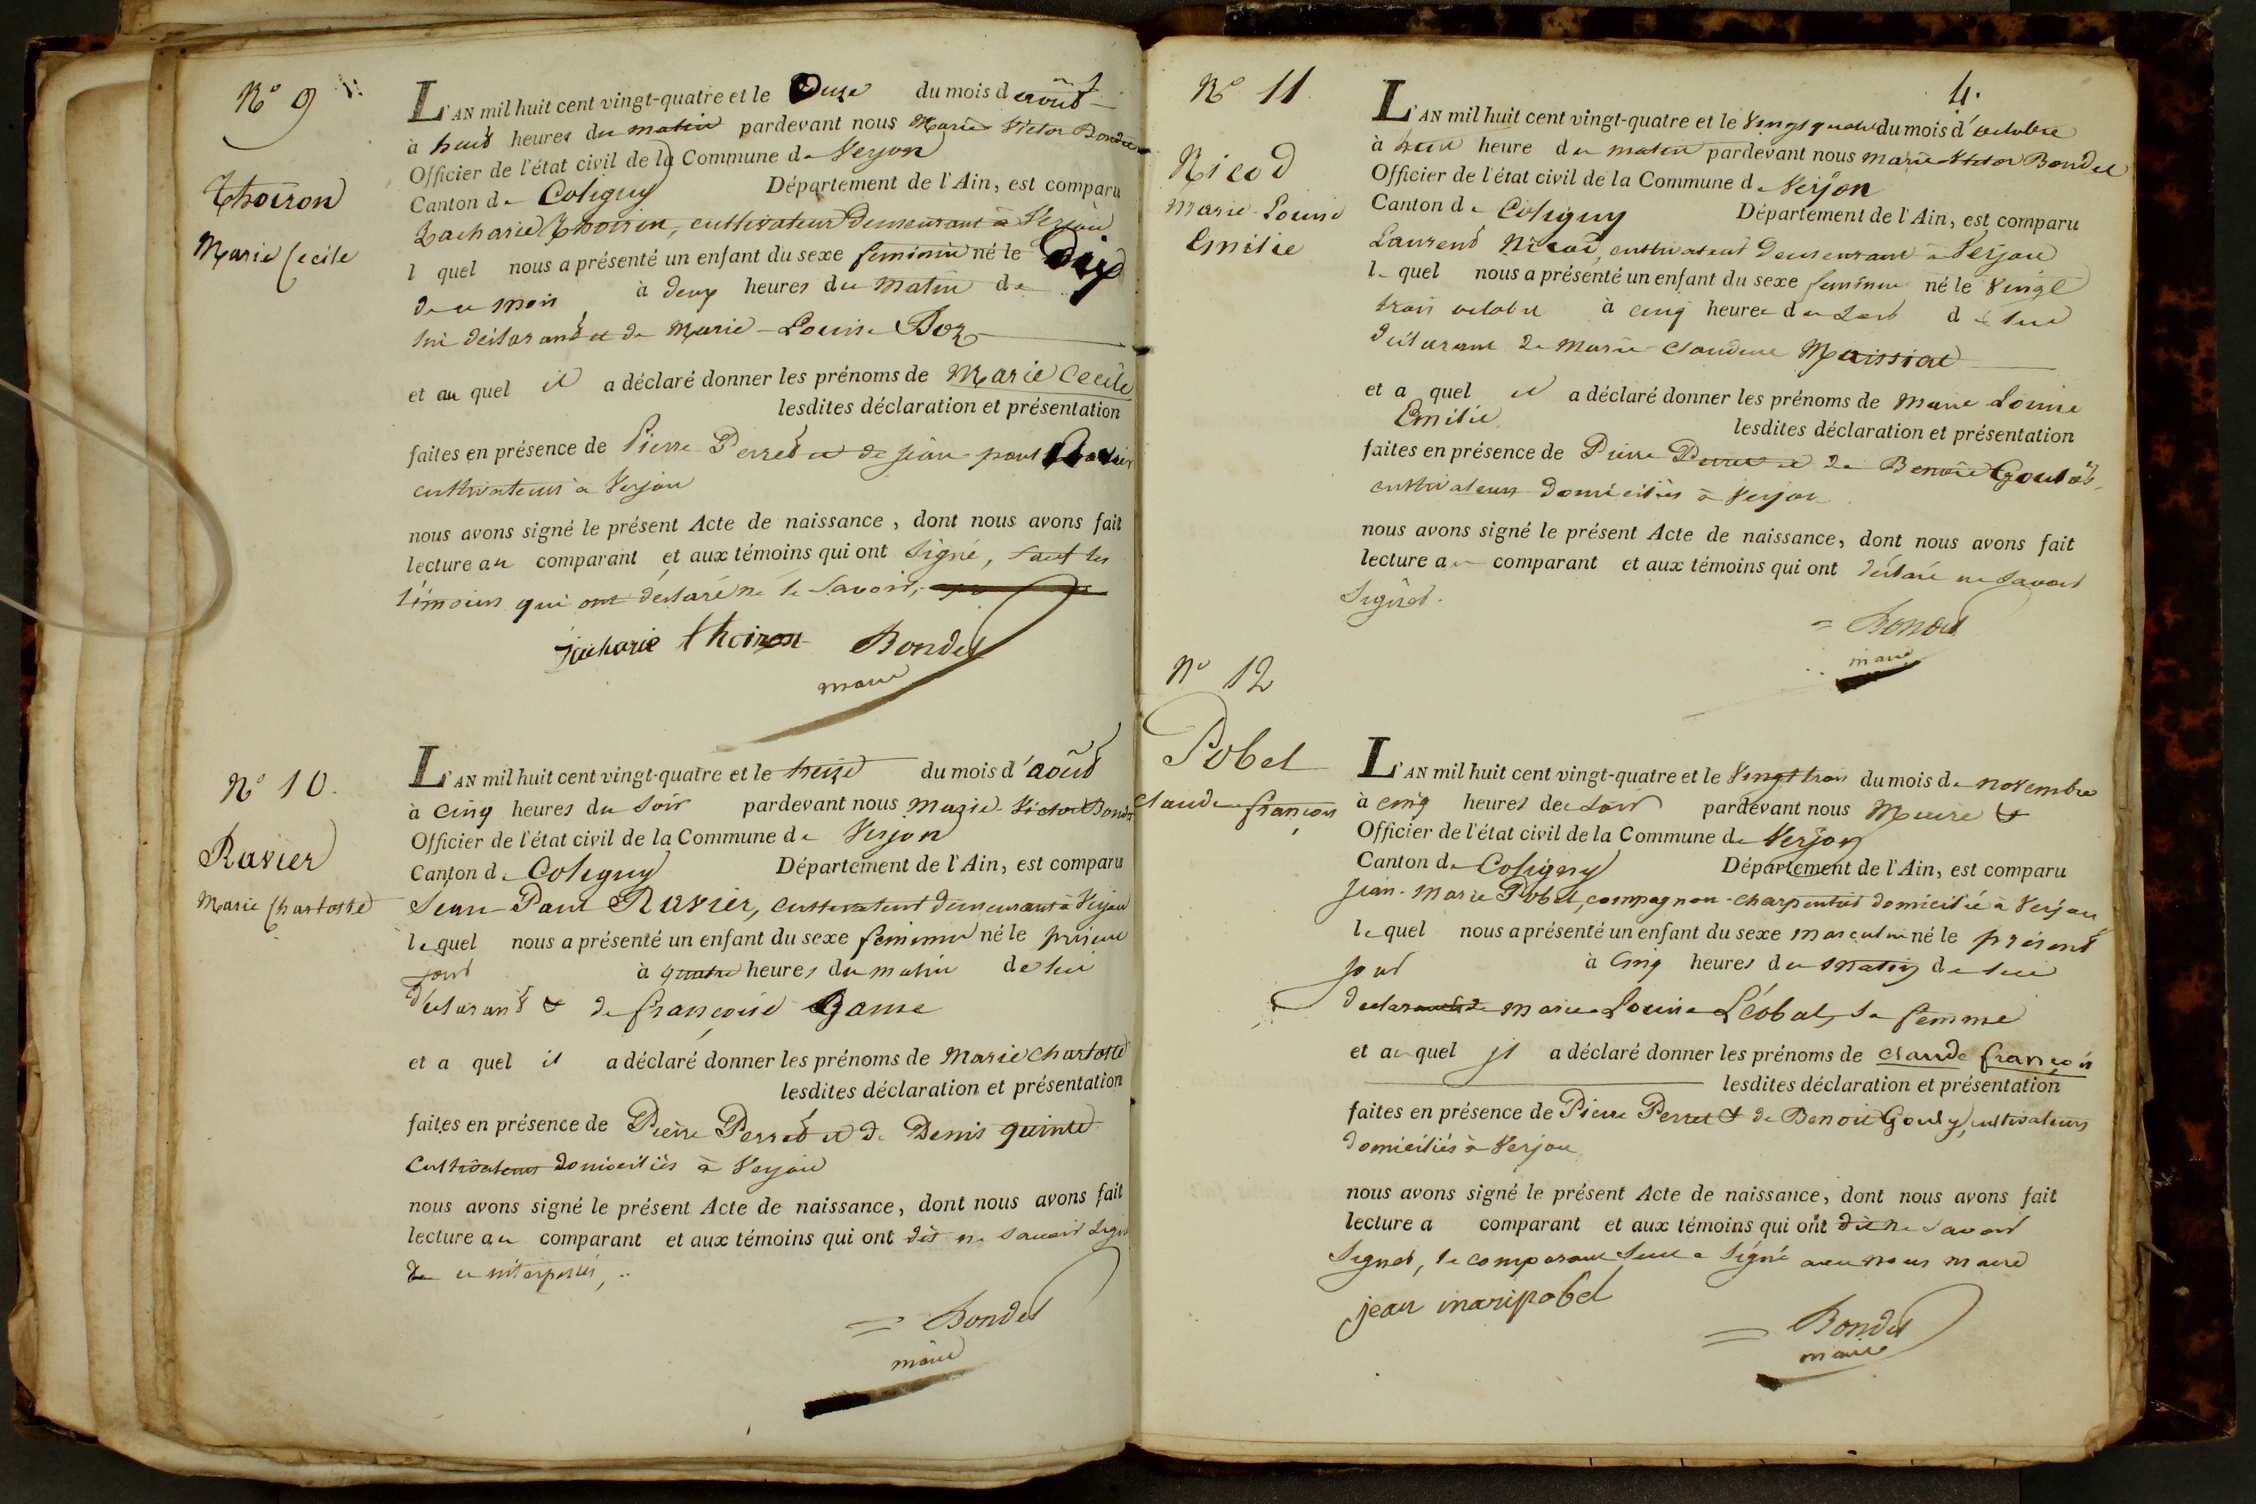 N° 9
Thoiron
Marie Cecile
L'AN mil huit cent vingt-quatre et le onze du mois d août
à huit heures du matin pardevant nous Marie Victor Bondet
Officier de l'état civil de la Commune de Verjon
Canton de Coligny Département de l'Ain, est comparu
Zacharie Thoiron, cultivateur demeurant à Verjon
l quel nous a présenté un enfant du sexe feminin né le dix
de ce mois à deux heures du matin de
lui déclarant et de Marie-Louise Boz
et au quel il a déclaré donner les prénoms de Marie Cecile
lesdites déclaration et présentation
faites en présence de Pierre Perret et de jean-paul Ravier
cultivateurs à Verjon
nous avons signé le présent Acte de naissance, dont nous avons fait
lecture au comparant et aux témoins qui ont signé, sauf les
témoins qui ont déclaré ne le savoir,
zacharie thoiron Bondet
maire
N° 10.
Ravier
Marie Charlotte
L'AN mil huit cent vingt-quatre et le treize du mois d'août
à cinq heures du soir pardevant nous Marie-Victor Bondet
Officier de l'état civil de la Commune de Verjon
Canton de Coligny Département de l'Ain, est comparu
Jean-Paul Ravier, cultivateur demeurant à Verjon
lequel nous a présenté un enfant du sexe feminin né le
jour à quatre heures du matin de lui
déclarant & de françoise Game
et a quel il a déclaré donner les prénoms de Marie Charlotte
lesdites déclaration et présentation
faites en présence de Pierre Perret et de Denis quinte
cultivateurs domiciliés à Verjon
nous avons signé le présent Acte de naissance, dont nous avons fait
lecture au comparant et aux témoins qui ont dit ne savoir signer
de ce interpellés,
= Bondet
maire
4.
N° 11
Nicod
Marie-Louise
Emilie
L'AN mil huit cent vingt-quatre et le Vingt quatre du mois d'octobre
à heure du matin pardevant nous marie Victor Bondet
Officier de l'état civil de la Commune de Verjon
Canton de Coligny Département de l'Ain, est comparu
Laurent Nicod, cultivateur demeurant à Verjon
le quel nous a présenté un enfant du sexe feminin né le Vingt
trois octobre à cinq heures du soir de lui
déclarant de Marie-claudine Maissiat
et a quel il a déclaré donner les prénoms de Marie Louise
Emilie lesdites déclaration et présentation
faites en présence de Pierre Perret et de Benoit
cultivateurs domiciliés à Verjon
nous avons signé le présent Acte de naissance, dont nous avons fait
lecture au comparant et aux témoins qui ont déclaré ne savoir
signer.
= Bondet
maire
N° 12
Pobel
Claude françois
L'AN mil huit cent vingt-quatre et le Vingt trois du mois de novembre
à cinq heures de soir pardevant nous Maire &
Officier de l'état civil de la Commune de Verjon
Canton de Coligny Département de l'Ain, est comparu
Jean-Marie Pobel, compagnon-charpentier domicilié à Verjon
le quel nous a présenté un enfant du sexe masculin né le présent
jour à cinq heures du matin de lui
declarant & de Marie-Louise Léobal, sa femme
et au quel il a déclaré donner les prénoms de claude françois
lesdites déclaration et présentation
faites en présence de Pierre Perret & de Benoit Gouly, cultivateurs
domiciliés à Verjon
nous avons signé le présent Acte de naissance, dont nous avons fait
lecture a comparant et aux témoins qui ont dit ne savoir
signer, le comparant seul a signé avec nous maire
jean maripobel
= Bondet
maire